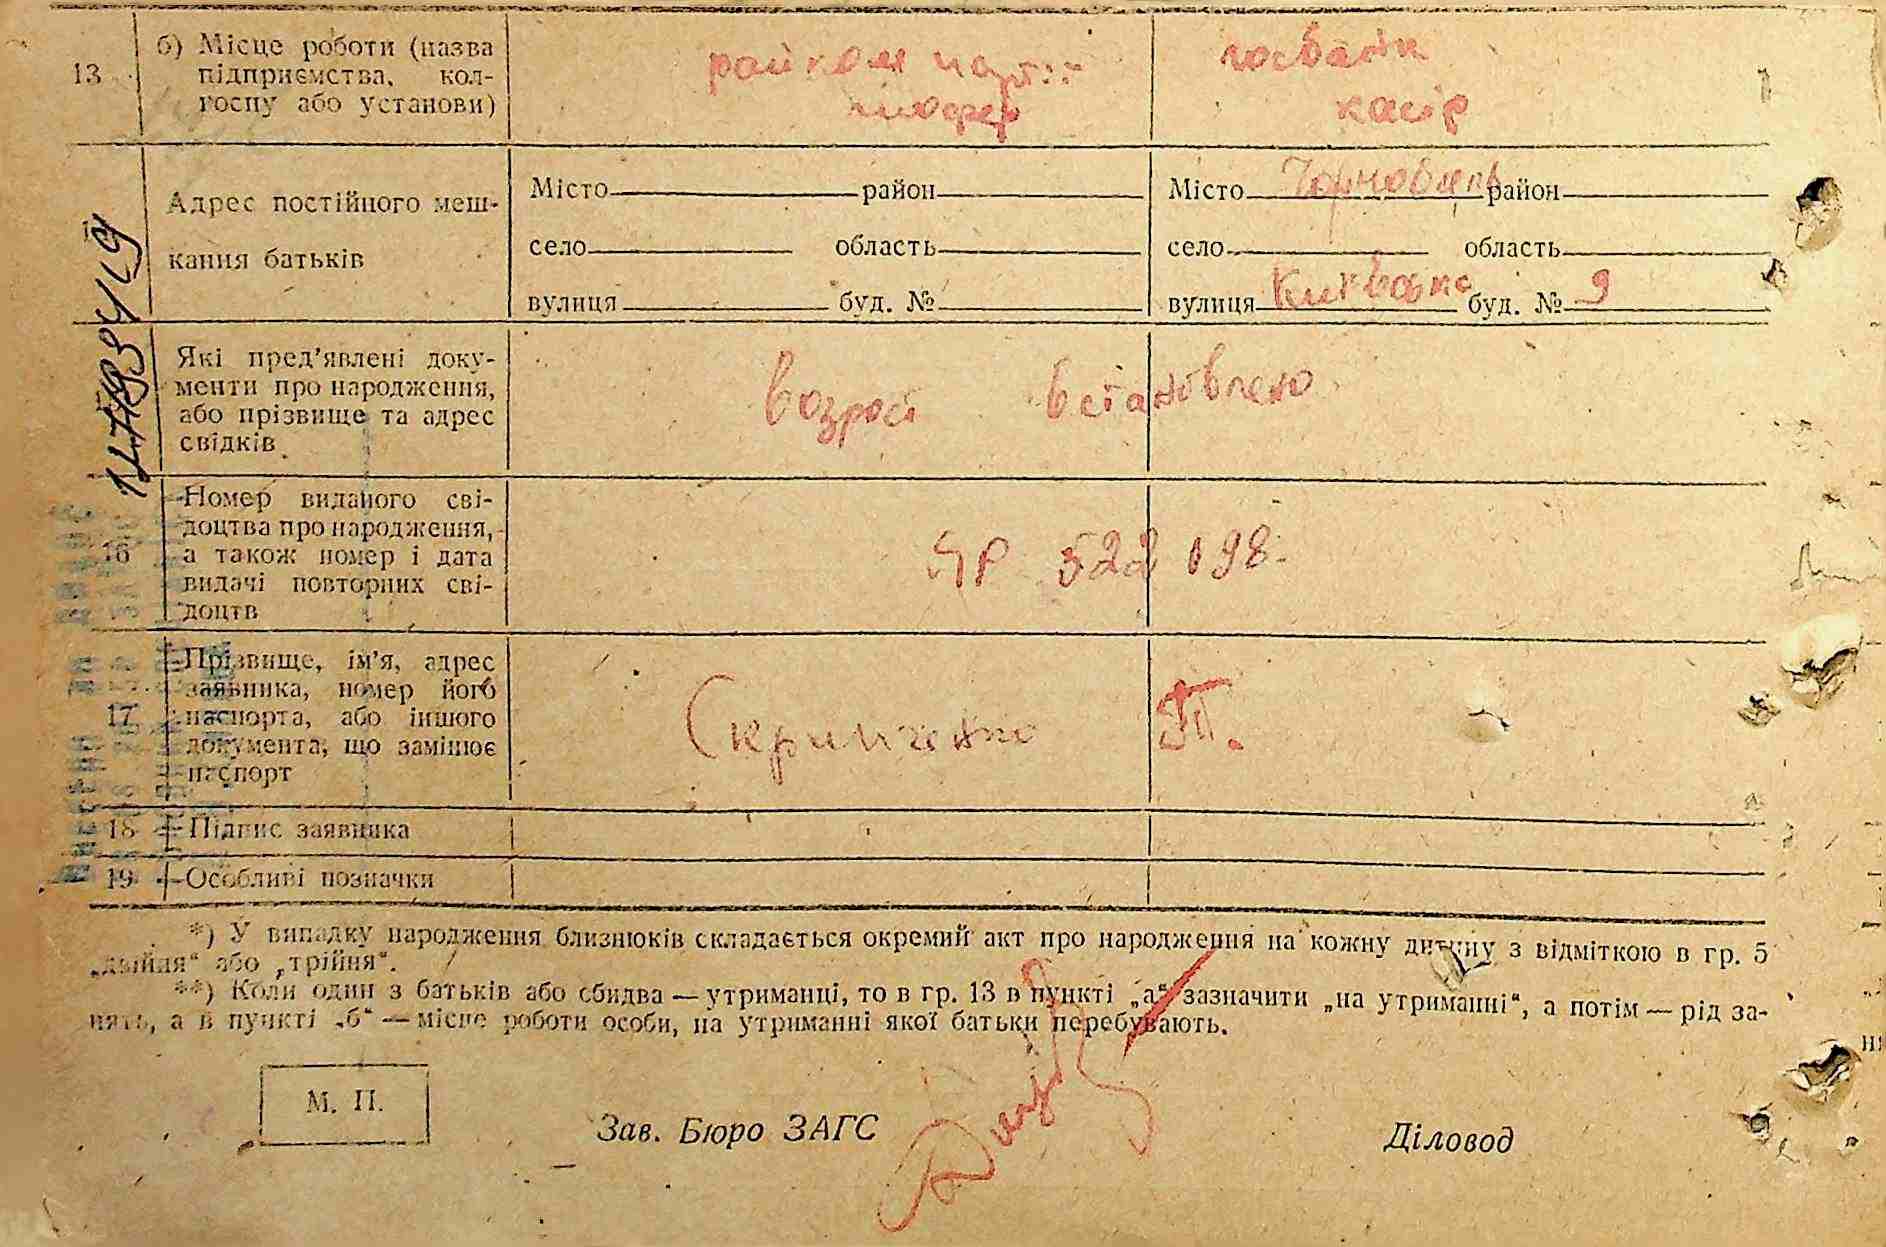 13
б) Місце роботи (назва
підприємства, кол-
госпу або установи)
райком партії
шофер
госбанк
касір
Адрес постійного меш-
кання батьків
Місто район
село область
вулиця буд. №
Місто Чорнобиль район
село область
вулиця Київська буд. № 9
Які пред’явлені доку-
менти про народження,
або прізвище та адрес
свідків
возраст встановлено
16
Номер виданого сві-
доцтва про народження,
а також номер і дата
видачі повторних сві-
доцтв
ЯР 522 198
17
Прізвище, ім’я, адрес
заявника, номер його
паспорта, або іншого
документа, що замінює
паспорт
18
Підпис заявника
19
Особливі позначки
*) У випадку народження близнюків складається окремий акт про народження на кожну дитину з відміткою в гр. 5
„двійня“ або „трійня“.
**) Коли один з батьків або обидва — утриманці, то в гр. 13 в пункті „а“ зазначити „на утриманні“, а потім — рід за-
нять, а в пункті „б“ — місце роботи особи, на утриманні якої батьки перебувають.
М. П.
Зав. Бюро ЗАГС
Діловод